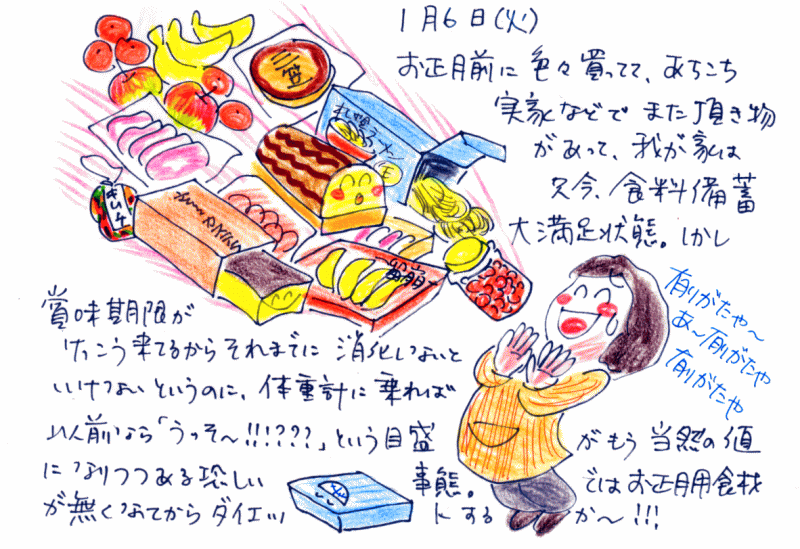 1月6日(火)
お正月前に色々買ってて、あちこち
実家などでまた頂き物
があって、我が家は
只今、食料備蓄
大満足状態。しかし
三笠
札幌ラーメン
キムチ
カステラ
有りがたや〜
あ〜有りがたや
有りがたや
賞味期限が
けっこう来てるからそれまでに消化しないと
いけないというのに、体重計に乗れば
以前なら「うっそ〜!!!???」という目盛がもう当然の値
になりつつある恐しい事態。ではお正月用食材
が無くなってからダイエットにするか〜!!!